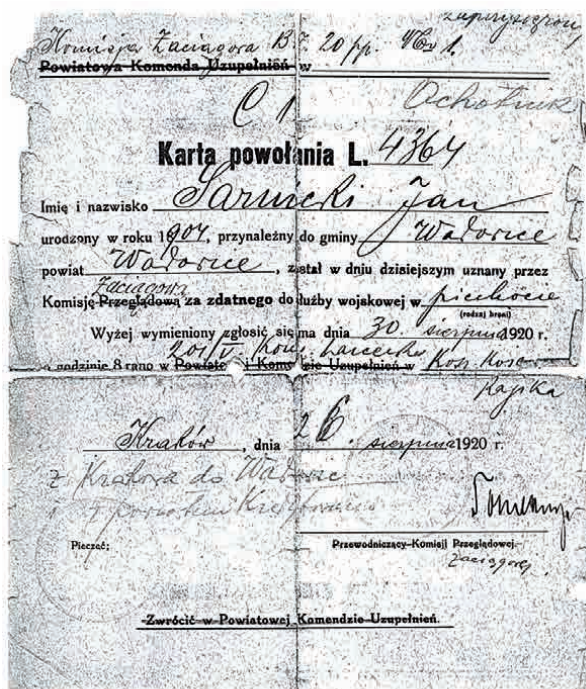 Komisja Zaciągowa B. Z. 20 pp.
Powiatowa Komenda Uzupełnień w
C 1 Ochotnik
Karta powołania L. 4364
Imię i nazwisko Sarnicki Jan
urodzony w roku 1904, przynależny do gminy Wadowice
powiat Wadowice, został w dniu dzisiejszym uznany przez
Zaciągową
Komisję Przeglądową za zdatnego do służby wojskowej w piechocie
(rodzaj broni)
Wyżej wymieniony zgłosić się ma dnia 30 sierpnia 1920 r.
201/V.
o godzinie 8 rano w Powiatowej Komendzie Uzupełnień w
Kraków, dnia 26. sierpnia 1920 r.
z Krakowa do Wadowic
i z powrotem
Pieczęć: Przewodniczący Komisji Przeglądowej.
Zaciągowej.
Zwrócić w Powiatowej Komendzie Uzupełnień.